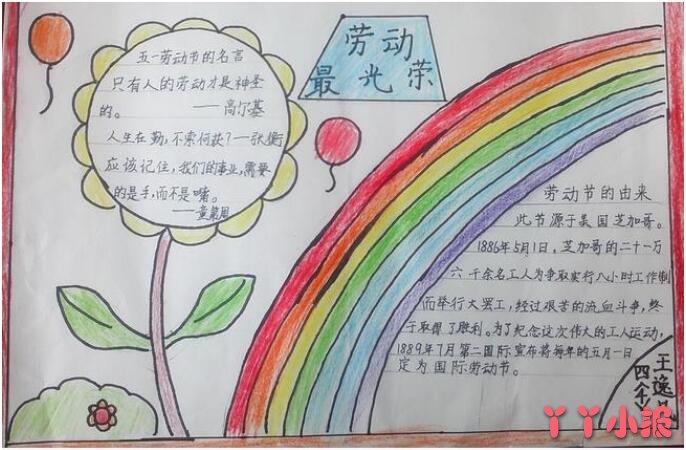 劳动
最光荣
五一劳动节的名言
只有人的劳动才是神圣
的。 ——高尔基
人生在勤,不索何获?—张衡
应该记住,我们的事业,需要
的是手,而不是嘴。
——童第周
劳动节的由来
此节源于美国芝加哥。
1886年5月1日,芝加哥的二十一万
六千余名工人为争取实行八小时工作制
而举行大罢工,经过艰苦的流血斗争,终
于取得了胜利。为了纪念这次伟大的工人运动,
1889年7月第二国际宣布将每年的五月一日
定为国际劳动节。
王逸
四
丫丫小报